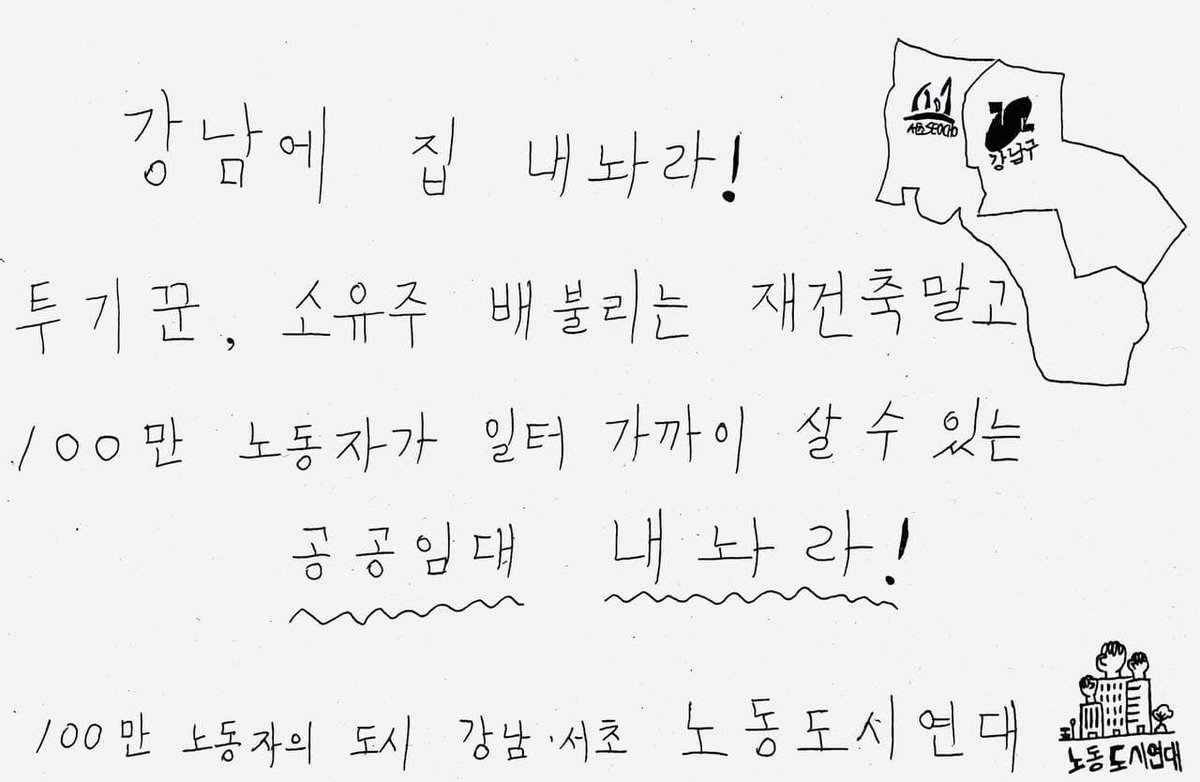 강남에 집 내놔라!
SEOCHO
강남구
투기꾼, 소유주 배불리는 재건축말고
100만 노동자가 일터 가까이 살 수 있는
공공임대 내놔라!
100만 노동자의 도시 강남·서초 노동도시연대
노동도시연대